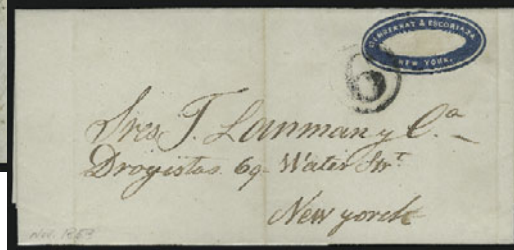 & ESCORIAZA
NEW YORK.
Sres. T. Lanman y Ca.
Drogistas. 69. Water Strt
New yorck
1853